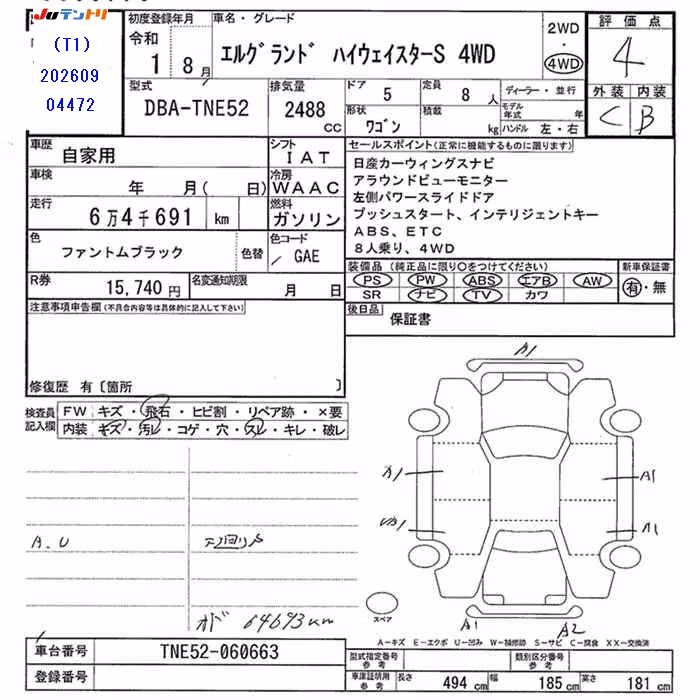 Juテントリ
(T1)
202609
04472
初度登録年月
令和
1 8月
車名・グレード
エルグランド ハイウェイスターS 4WD
2WD
・
4WD
評価点
4
外装 内装
C B
型式
DBA-TNE52
排気量
2488
CC
ドア
5
定員
8 人
ディーラー・並行
形状
ワゴン
積載
kg
モデル年式 年
ハンドル 左・右
車歴
自家用
シフト
IAT
車検
年 月( 日)
冷房
WAAC
走行
6万4千691 km
燃料
ガソリン
色
ファントムブラック
色替
色コード
GAE
R券
15,740円
名変通知期限
月 日
セールスポイント(正常に機能するものに限ります)
日産カーウィングスナビ
アラウンドビューモニター
左側パワースライドドア
プッシュスタート、インテリジェントキー
ABS、ETC
8人乗り、4WD
装備品(純正品に限り○をつけてください)
PS PW ABS エアB AW
SR ナビ TV カワ
新車保証書
有・無
後日品
保証書
注意事項申告欄(不具合内容等は具体的に記入して下さい)
修復歴 有〔箇所 〕
検査員記入欄
FW キズ・飛石・ヒビ割・リペア跡・×要
内装 キズ・汚レ・コゲ・穴・スレ・キレ・破レ
A.U
オド 64693km
A1
A1
A1
A1
A1
A2
スペア
A-キズ E-エクボ U-凹み W-補修跡 S-サビ C-腐食 XX-交換済
車台番号
TNE52-060663
登録番号
型式指定番号
参考
類別区分番号
参考
車庫証明用
参考
長さ 494 cm 幅 185 cm 高さ 181 cm